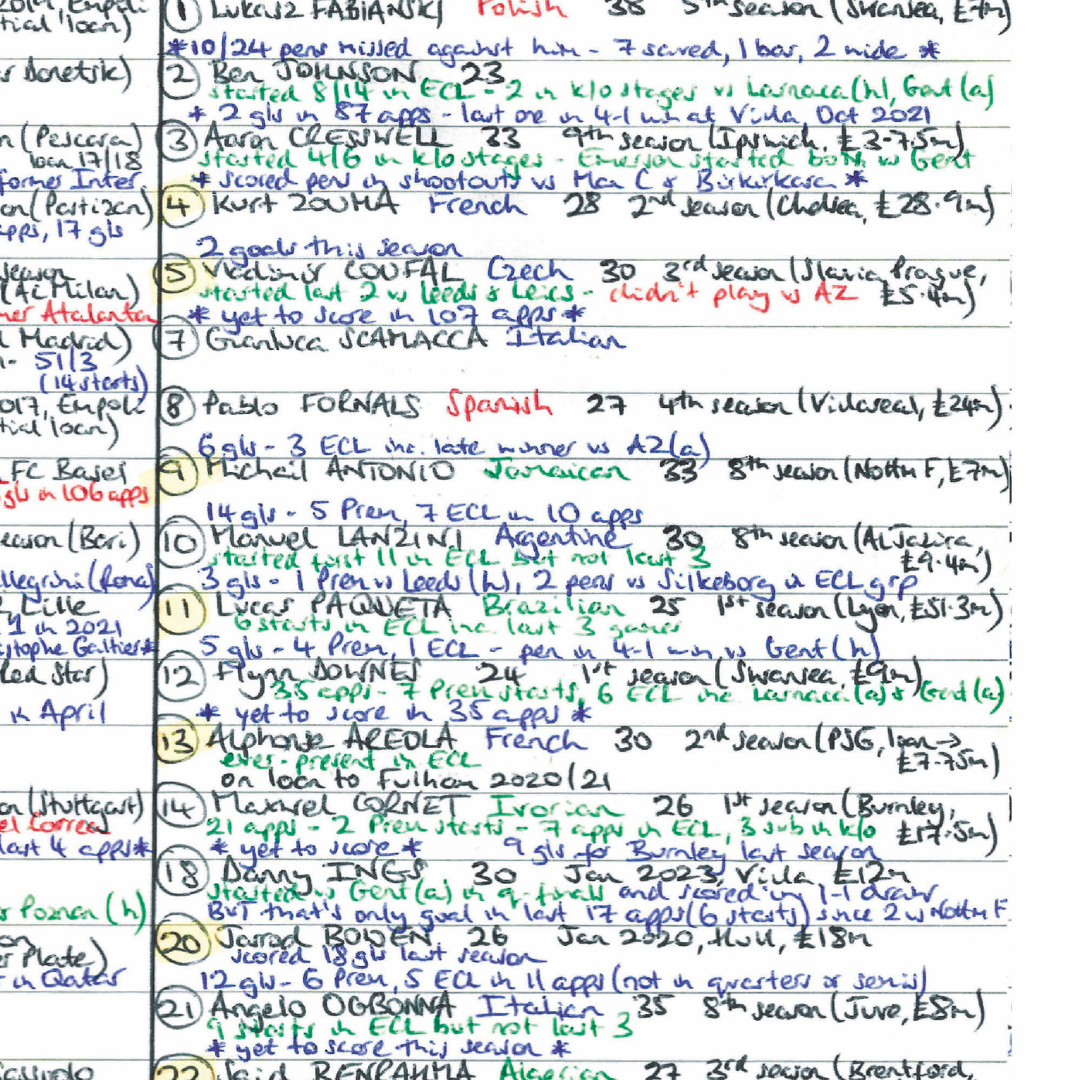 2019, Empoli
tial loan)
r Donetsk)
n (Pescara)
loan 17/18
former Inter
on (Partizan)
apps, 17 gls
season
(AC Milan)
mer Atalanta
l Madrid)
n - 51/3
(14 starts)
2017, Empoli
tial loan)
FC Basel
gls in 106 apps
eason (Bari)
llegrini (Roma)
2, Lille
1 in 2021
istophe Galtier*
Red Star)
in April
on (Stuttgart)
el Correa
last 4 apps*
s Poznan (h)
on
er Plate)
t in Qatar
Sassuolo
1 Lukasz FABIANSKI Polish 38 5th season (Swansea, £7m)
*10/24 pens missed against him - 7 saved, 1 bar, 2 wide *
2 Ben JOHNSON 23
started 8/14 in ECL - 2 in k/o stages vs Larnaca (h), Gent (a)
* 2 gls in 87 apps - last one in 4-1 win at Villa, Oct 2021
3 Aaron CRESSWELL 33 9th season (Ipswich, £3-7.5m)
started 4/6 in k/o stages - Emerson started both vs Gent
* scored pens in shootouts vs Man C & Birkirkara *
4 Kurt ZOUMA French 28 2nd season (Chelsea, £28.9m)
2 goals this season
5 Vladimir COUFAL Czech 30 3rd season (Slavia Prague,
started last 2 vs Leeds & Leics - didn't play vs AZ £5.4m)
* yet to score in 107 apps *
7 Gianluca SCAMACCA Italian
8 Pablo FORNALS Spanish 27 4th season (Villareal, £24m)
6 gls - 3 ECL inc. late winner vs AZ (a)
9 Michail ANTONIO Jamaican 33 8th season (Nottm F, £7m)
14 gls - 5 Prem, 7 ECL in 10 apps
10 Manuel LANZINI Argentine 30 8th season (Al Jazira,
started first 11 in ECL but not last 3 £9.4m)
3 gls - 1 Prem vs Leeds (h), 2 pens vs Silkeborg in ECL grp
11 Lucas PAQUETA Brazilian 25 1st season (Lyon, £51.3m)
6 starts in ECL inc. last 3 games
5 gls - 4 Prem, 1 ECL - pen in 4-1 win vs Gent (h)
12 Flynn DOWNES 24 1st season (Swansea, £9m)
35 apps - 7 Prem starts, 6 ECL inc Larnaca (a) & Gent (a)
* yet to score in 35 apps *
13 Alphonse AREOLA French 30 2nd season (PSG, loan →
ever-present in ECL £7.75m)
on loan to Fulham 2020/21
14 Maxwel CORNET Ivorian 26 1st season (Burnley,
21 apps - 2 Prem starts - 7 apps in ECL, 3 sub in k/o £17.5m)
* yet to score * 9 gls for Burnley last season
18 Danny INGS 30 Jan 2023, Villa £12m
started vs Gent (a) in q-finals and scored in 1-1 draw
BUT that's only goal in last 17 apps (6 starts) since 2 vs Nottm F
20 Jarrod BOWEN 26 Jan 2020, Hull, £18m
scored 18 gls last season
12 gls - 6 Prem, 5 ECL in 11 apps (not in quarters or semis)
21 Angelo OGBONNA Italian 35 8th season (Juve, £8m)
9 starts in ECL but not last 3
* yet to score this season *
22 Said BENRAHMA Algerian 27 3rd season (Brentford,